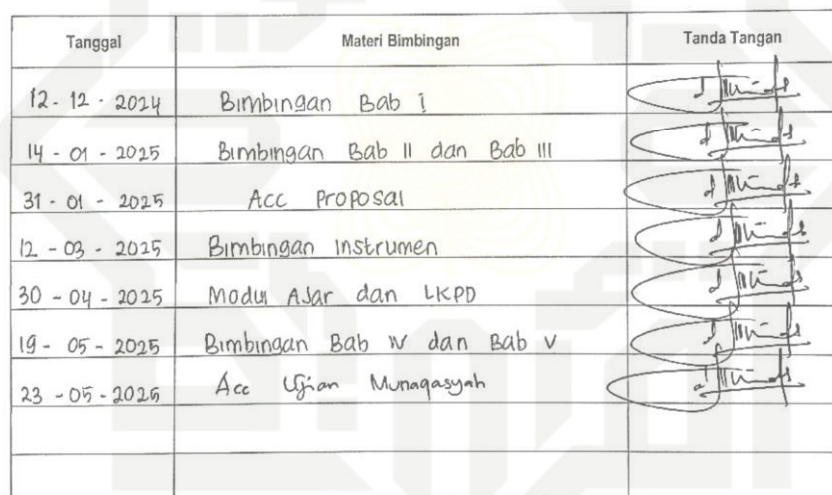 Tanggal Materi Bimbingan Tanda Tangan
12 - 12 - 2024 Bimbingan Bab I
14 - 01 - 2025 Bimbingan Bab II dan Bab III
31 - 01 - 2025 Acc Proposal
12 - 03 - 2025 Bimbingan instrumen
30 - 04 - 2025 Modul Ajar dan LKPD
19 - 05 - 2025 Bimbingan Bab IV dan Bab V
23 - 05 - 2025 Acc Ujian Munaqasyah